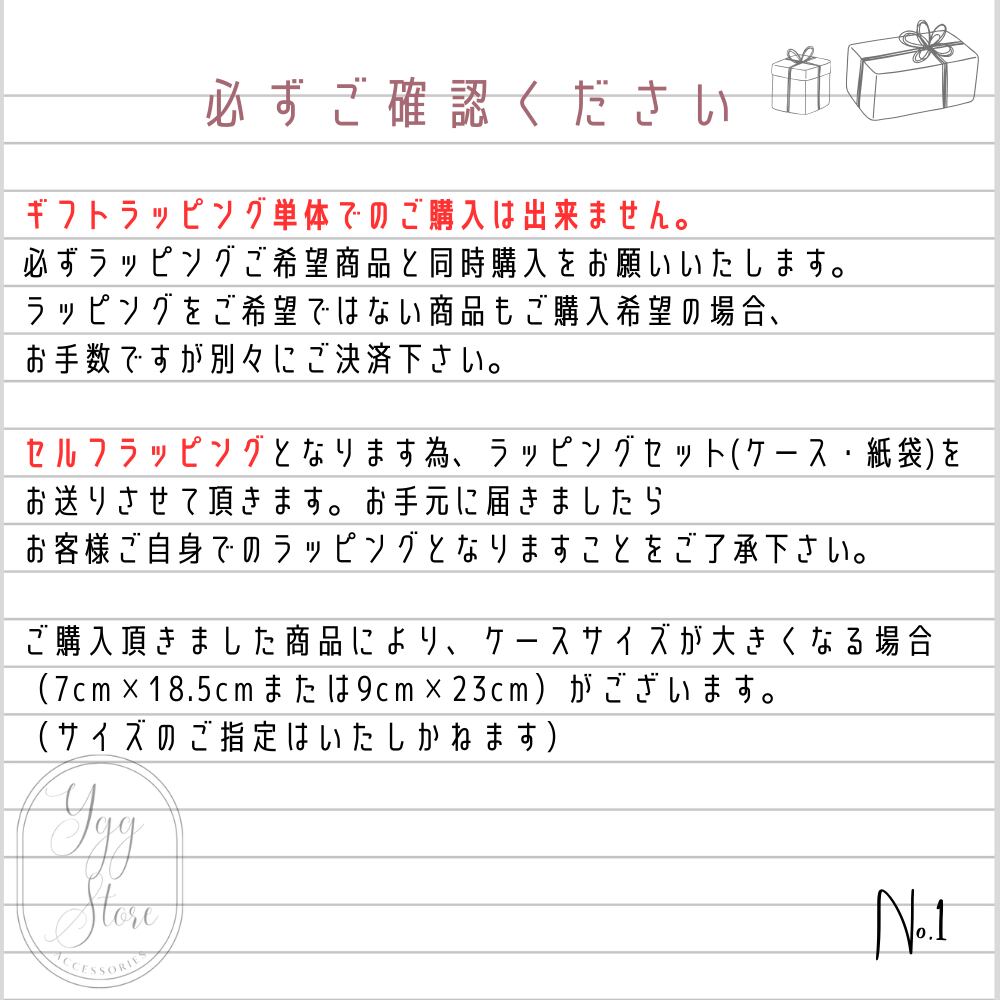 必ずご確認ください
ギフトラッピング単体でのご購入は出来ません。
必ずラッピングご希望商品と同時購入をお願いいたします。
ラッピングをご希望ではない商品もご購入希望の場合、
お手数ですが別々にご決済下さい。
セルフラッピングとなります為、ラッピングセット(ケース・紙袋)を
お送りさせて頂きます。お手元に届きましたら
お客様ご自身でのラッピングとなりますことをご了承下さい。
ご購入頂きました商品により、ケースサイズが大きくなる場合
（7cm×18.5cmまたは9cm×23cm）がございます。
（サイズのご指定はいたしかねます）
Ygg
Store
ACCESSORIES
No.1